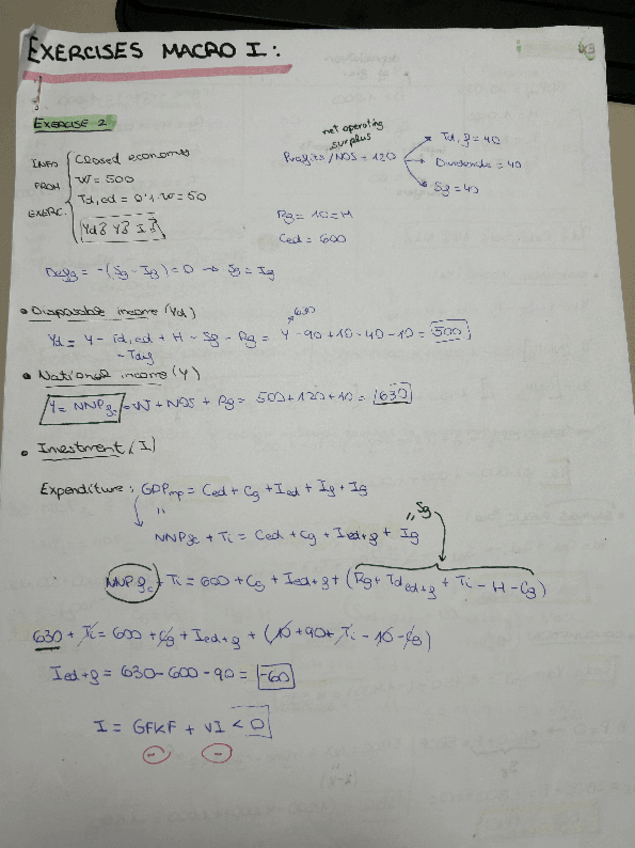 EXERCISES MACRO I:
EXERCISE 2
INFO FROM EXERC.
Closed economy
W = 500
Td,ed = 0'1·W = 50
Yd? Y? I?
net operating surplus
Profits/NOS = 120
Td,f = 40
Dividends = 40
Sf = 40
Rg = 10 = H
Ced = 600
Defg = -(Sg - Ig) = 0 → Sg = Ig
• Disposable income (Yd)
630
Yd = Y - Td,ed + H - Sf - Rg = Y - 90 + 10 - 40 - 10 = 500
- Td,f
• National income (Y)
Y = NNPfc = W + NOS + Rg = 500 + 120 + 10 = 630
• Investment (I)
Expenditure: GDPmp = Ced + Cg + Ied + If + Ig
" Sg
NNPfc + Ti = Ced + Cg + Ied+f + Ig
NNPfc + Ti = 600 + Cg + Ied+f + (Rg + Td ed+f + Ti - H - Cg)
630 + Ti = 600 + Cg + Ied+f + (10 + 90 + Ti - 10 - Cg)
Ied+f = 630 - 600 - 90 = -60
I = GFKF + VI < 0
- -